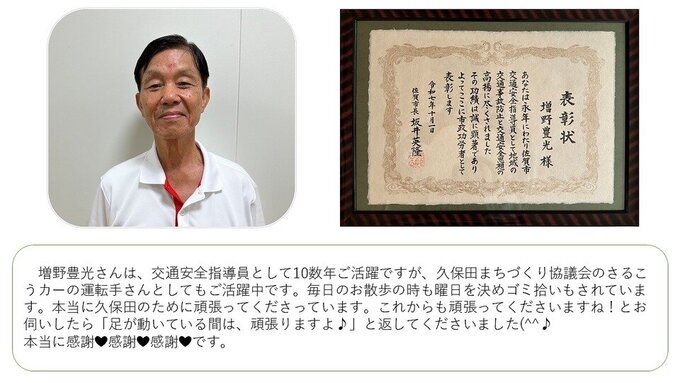 表彰状
増野豊光 様
あなたは永年にわたり佐賀市
交通安全指導員として地域の
交通事故防止と交通安全意識の
高揚に尽くされました
その功績は誠に顕著であり
よってここに市政功労者として
表彰します
令和七年十月一日
佐賀市長 坂井英隆
増野豊光さんは、交通安全指導員として10数年ご活躍ですが、久保田まちづくり協議会のさるこ
うカーの運転手さんとしてもご活躍中です。毎日のお散歩の時も曜日を決めゴミ拾いもされていま
す。本当に久保田のために頑張ってくださっています。これからも頑張ってくださいますね！とお
伺いしたら「足が動いている間は、頑張りますよ♪」と返してくださいました(^^♪
本当に感謝♥感謝♥感謝♥です。